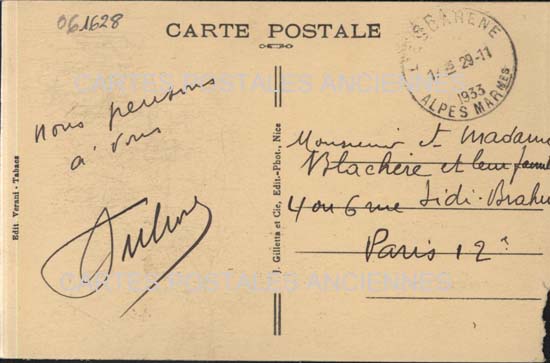 061628
CARTE POSTALE
LESCARENE
1 29-11
1933
ALPES MARMES
CARTES POSTALES ANCIENNES
nous pensons
à vous
Monsieur et Madame
Blachère et leur famille
4 ou 6 rue Sidi-Brahi
Paris 12e
CARTES POSTALES ANCIENNES
Edit Verani - Tabacs
J. Gilletta et Cie, Edit.-Phot., Nice